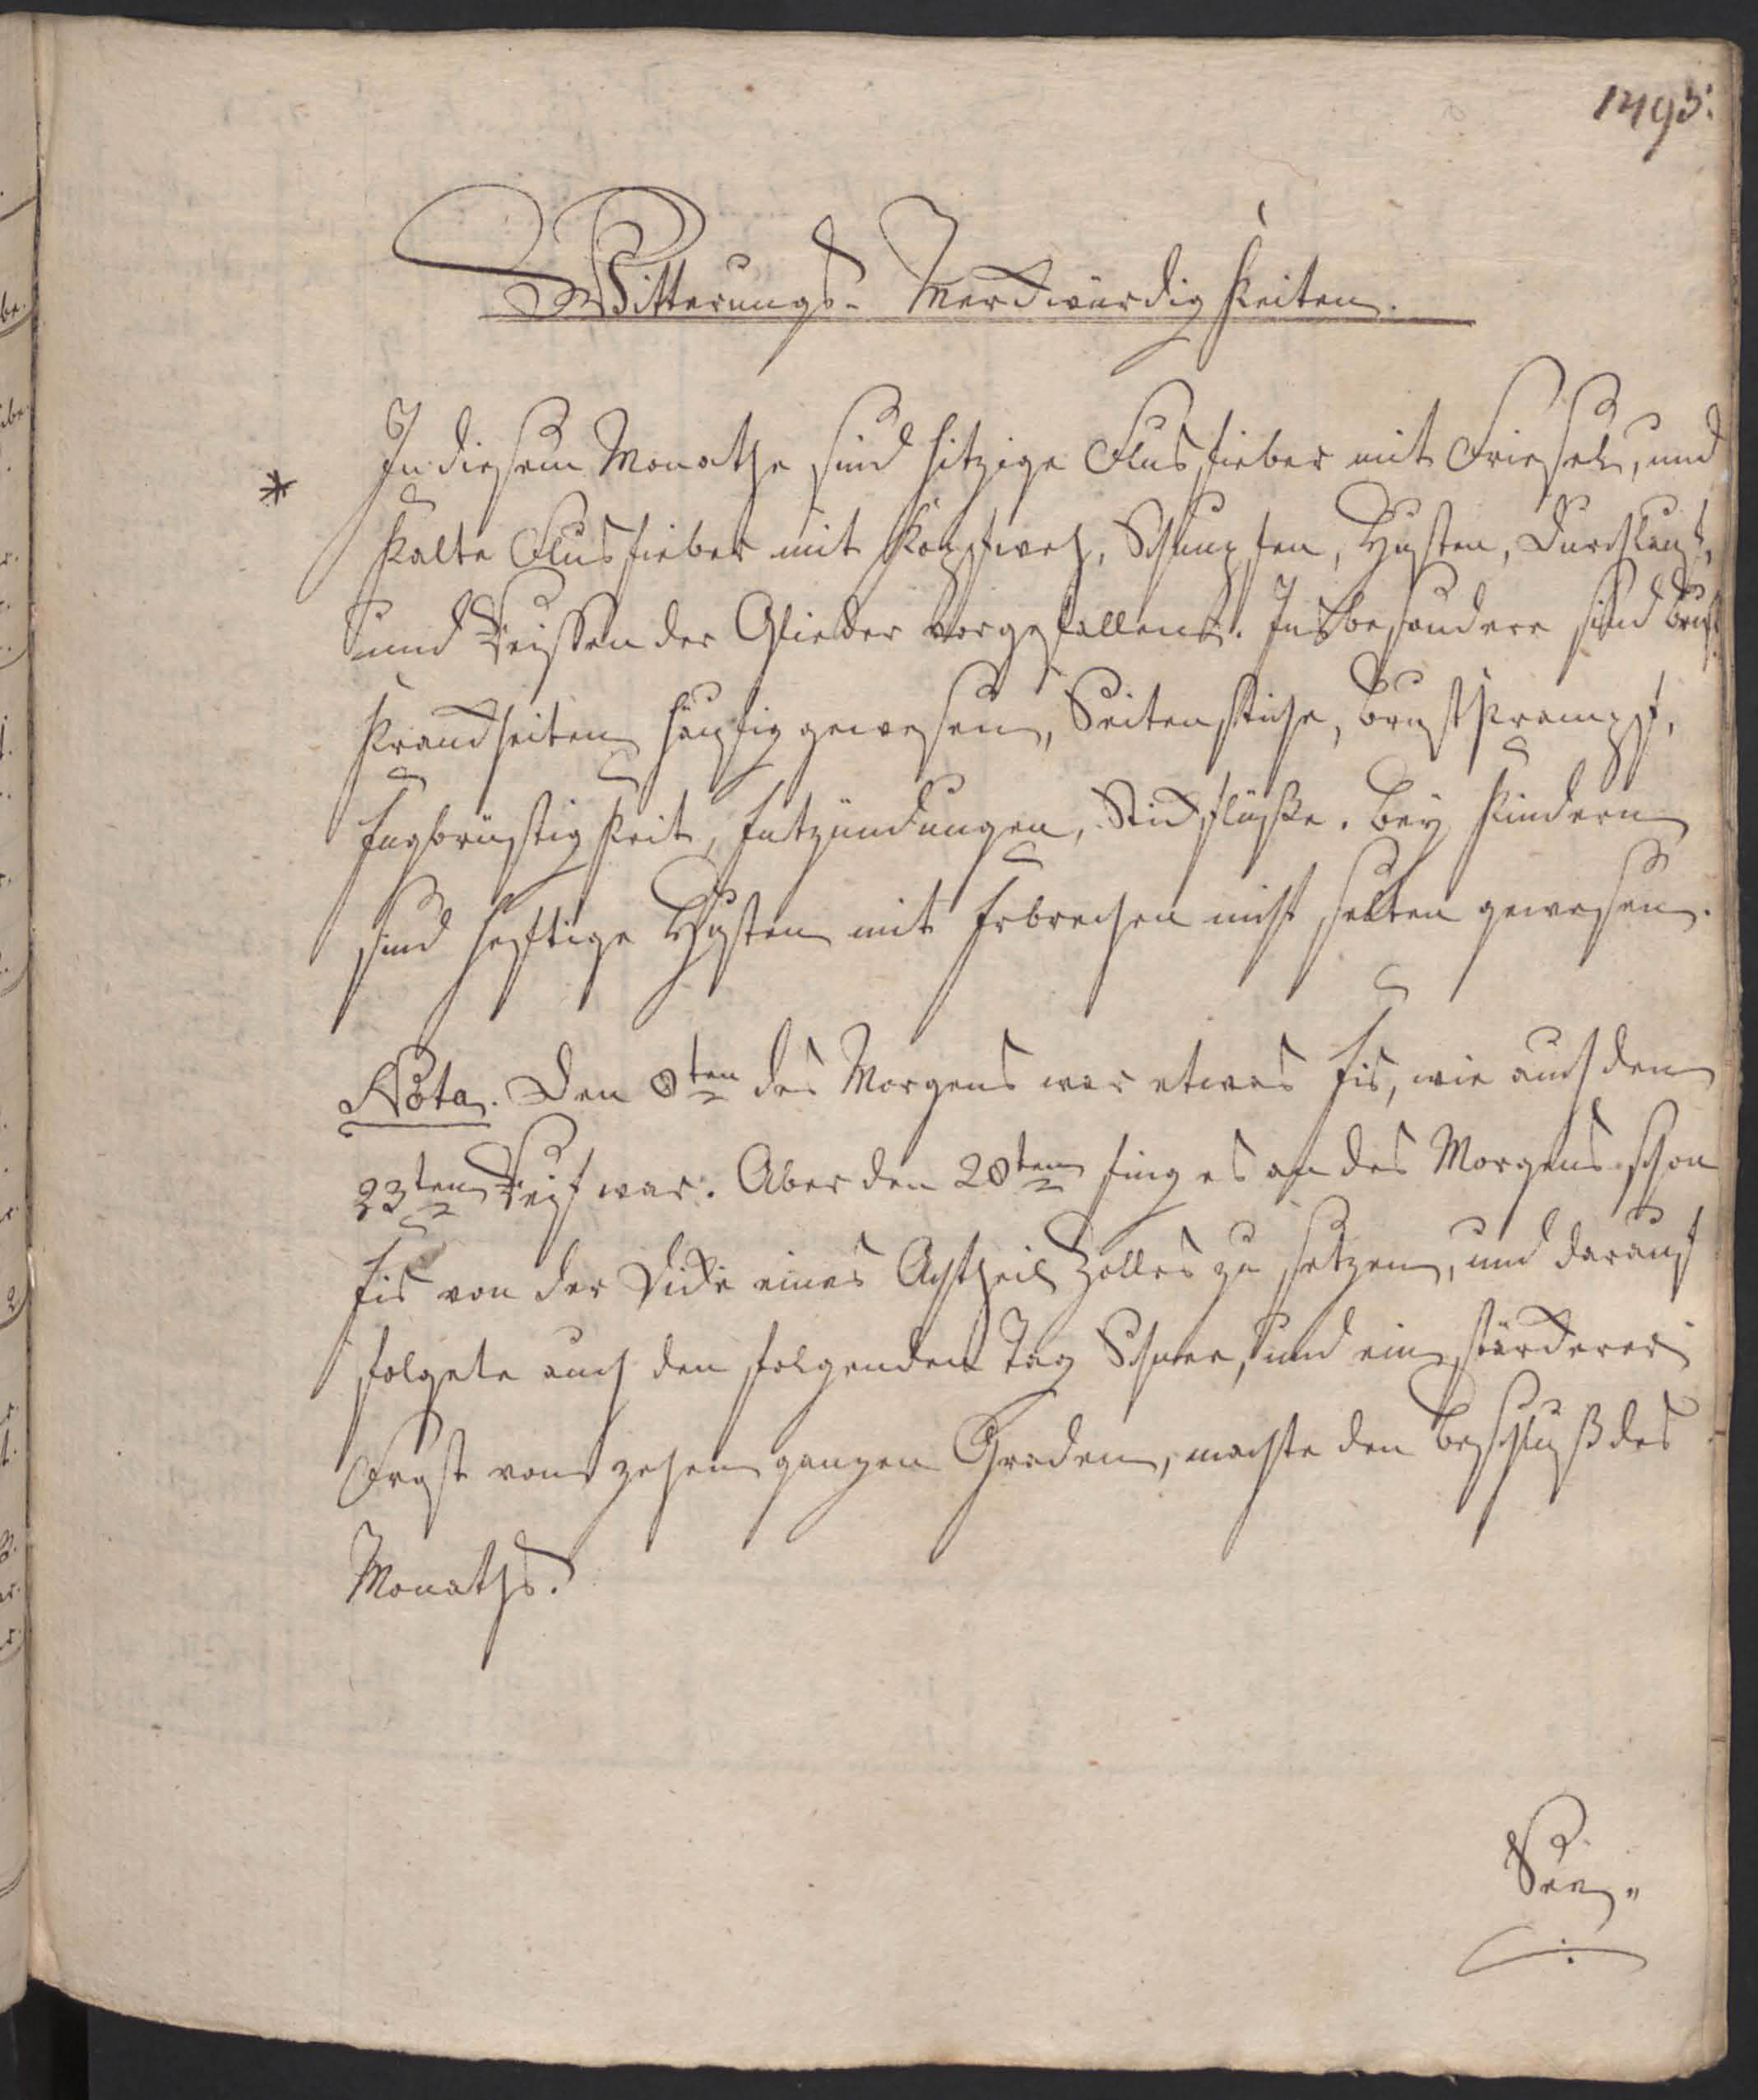 1493.
Witterungs- Merckwürdigkeiten.
* In diesem Monathe sind hitzige Flusfieber mit Friesel, und
kalte Flusfieber mit Kopfweh, Schnupfen, Husten, Durchlauf,
und Reissen der Glieder vorgefallen. Insbesondere sind Brust-
kranckheiten häufig gewesen, Seitenstiche, Brustkrampf,
Engbrüstigkeit, Entzündungen, Stickflüsse. Bey Kindern
sind heftige Husten mit Erbrechen nicht selten gewesen.
Nota. Den 8ten des Morgens war etwas Eis, wie auch den
23ten Reif war. Aber den 28ten fing es an des Morgens schon
Eis von der Dicke eines Achtheil Zolles zu setzen, und darauf
folgete auch den folgenden Tag Schnee, und ein stärckerer
Frost von zehen ganzen Graden, machte den Beschluß des
Monaths.